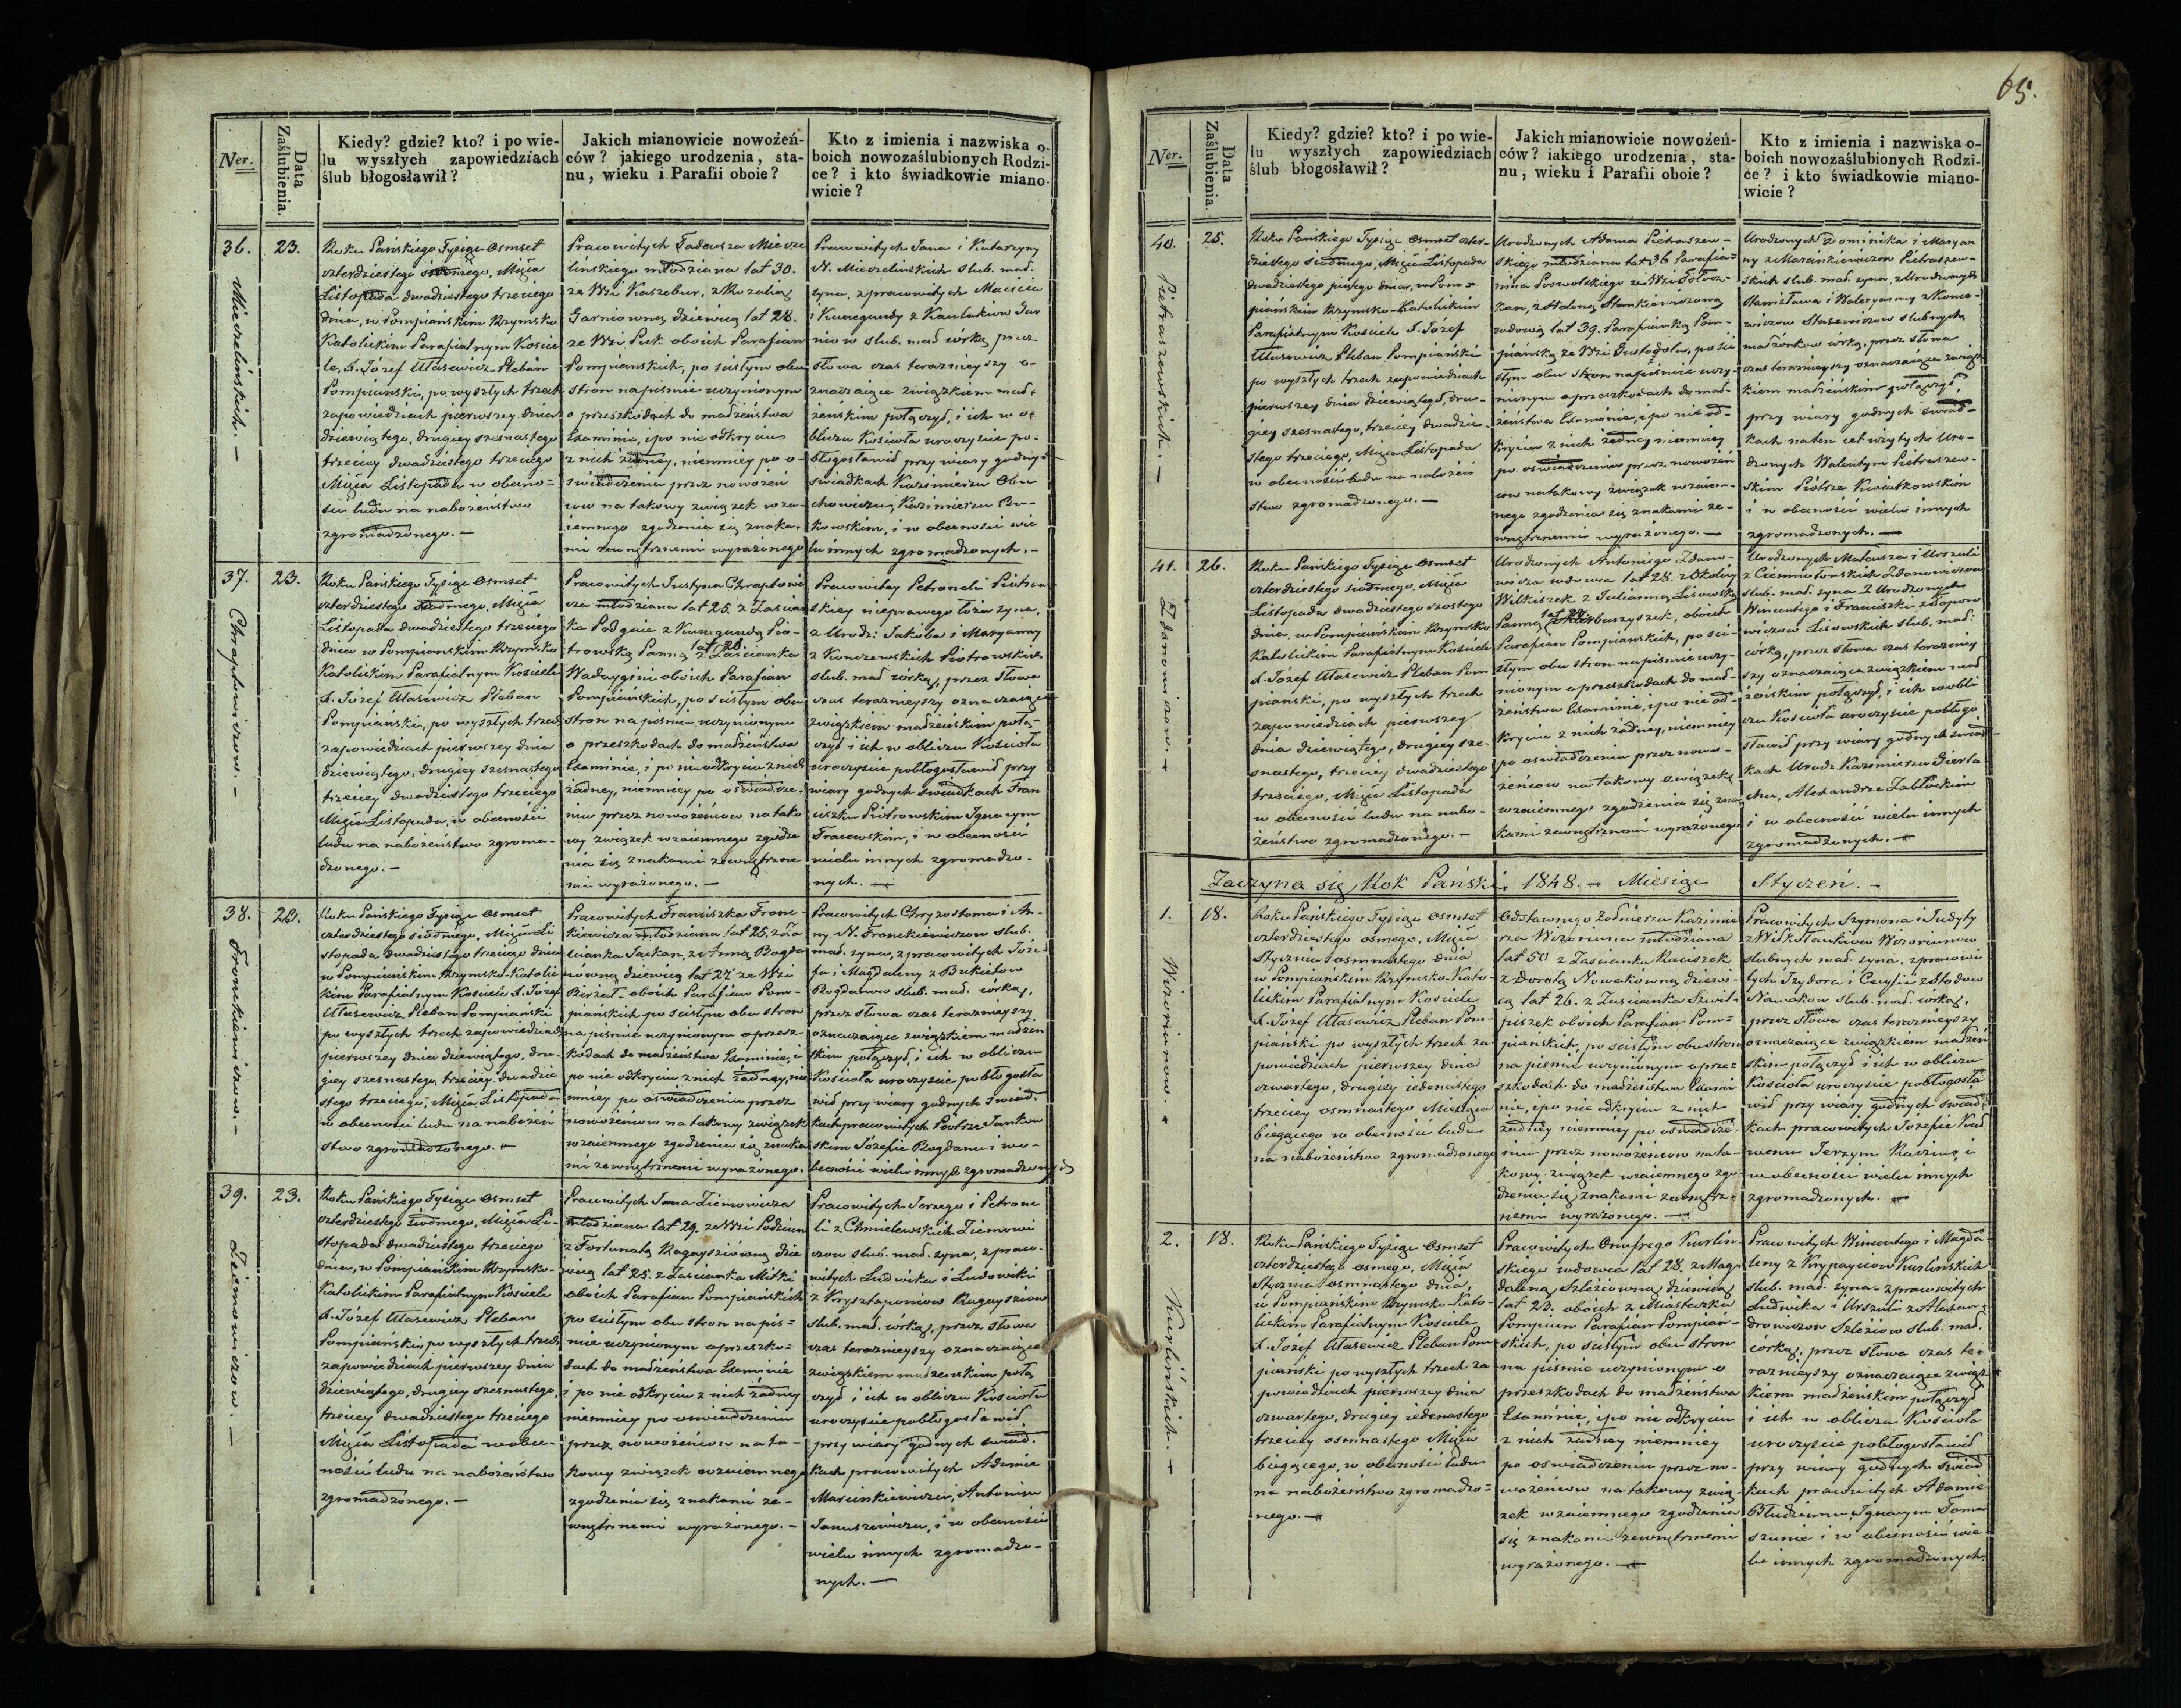 Ner.
Data Zaślubienia.
Kiedy? gdzie? kto? i po wie-
lu wyszłych zapowiedziach
ślub błogosławił?
Jakich mianowicie nowożeń-
ców? jakiego urodzenia, sta-
nu, wieku i Parafii oboie?
Kto z imienia i nazwiska o-
boich nowozaślubionych Rodzi-
ce? i kto świadkowie miano-
wicie?
36.
Mieczelińskich. —
23.
Roku Pańskiego Tysiąc Osmset
czterdziestego siodmego, Miąca
Listopada dwadziestego trzeciego
dnia, w Pompiańskim Rzymsko
Katolickim Parafialnym Koscie
le, X. Józef Ułasewicz Pleban
Pompianski, po wyszłych trzech
zapowiedziach pierwszey dnia
dziewiątego, drugiey szesnastego
trzeciey dwadziestego trzeciego
Miąca Listopada w obecno=
ści ludu na nabożeństwo
zgromadzonego. —
Pracowitych Tadeusza Miecze
lińskiego młodziana lat 30.
ze Wsi Kaszebur, z Rozalią
Garniowną dziewicą lat 28.
ze Wsi Puk oboich Parafian
Pompianskich, po scisłym obu
stron na pismie uczynionym
o przeszkodach do małżeństwa
Examinie, i po nie odkryciu
z nich żadney, niemniey po o-
świadczeniu przez nowożeń
cow na takowy związek wza-
iemnego zgodzenia się znaka-
mi zewnętrznemi wyrażonego
Pracowitych Jana i Katarzyny
N. Mieczelinskich slub. mał.
syna, z pracowitych Macieia
i Kunegundy z Kaulakow Gar
niow slub. mał. córką, przez
słowa czas teraznieyszy o-
znaczaiące związkiem mał-
żeńskim połączył, i ich w o-
bliczu Kościoła uroczyscie po-
błogosławił przy wiary godnych
swiadkach Kazimierzu Obu
chowiczu, Kazimierzu
kowskim, i w obecności wie
lu innych zgromadzonych. —
37.
Chraptowiczow. —
23.
Roku Pańskiego Tysiąc Osmset
czterdziestego siodmego, Miąca
Listopada dwadziestego trzeciego
dnia w Pompianskim Rzymsko
Katolickim Parafialnym Kosciele
X. Józef Ułasewicz Pleban
Pompianski, po wyszłych trzech
zapowiedziach pierwszey dnia
dziewiątego, drugiey szesnastego
trzeciey dwadziestego trzeciego
Miąca Listopada, w obecności
ludu na nabożeństwo zgroma-
dzonego. —
Pracowitych Justyna Chraptowi
cza młodziana lat 25. z Zascian
ka Podgaie z Kunegundą Pio-
trowską Panną lat 20. z Zascianka
Wadaygini oboich Parafian
Pompiańskich, po scisłym obu
stron na pismie uczynionym
o przeszkodach do małżeństwa
Examinie, i po nie odkryciu z nich
żadney, niemniey po oświadcze-
niu przez nowożeńcow na tako
wy związek wzaiemnego zgodze
nia się znakami zewnętrzne
mi wyrażonego. —
Pracowitey Petroneli Piotrow
skiey nieprawego łoża syna,
z Urodz: Jakóba i Maryanny
z Kunczewskich Piotrowskich
slub. mał córką, przez słowa
czas teraznieyszy oznaczaiące
związkiem małżeńskim połą-
czył i ich w obliczu Kościoła
uroczyscie pobłogosławił przy
wiary godnych świadkach Fran
ciszku Piotrowskim Ignacym
Tracewskim, i w obecności
wielu innych zgromadzo-
nych. —
38.
Fronckiewiczow. —
23.
Roku Pańskiego Tysiąc Osmset
czterdziestego siodmego, Miąca Li
stopada dwadziestego trzeciego dnia
w Pompianskim Rzymsko-Katolic
kim Parafialnym Kosciele X. Józef
Ułasewicz Pleban Pompianski
po wyszłych trzech zapowiedziach
pierwszey dnia dziewiątego, dru-
giey szesnastego, trzeciey dwadzie
stego trzeciego, Miąca Listopada
w obecności ludu na nabożeń
stwo zgromadzonego. —
Pracowitych Franciszka Fronc-
kiewicza młodziana lat 25. z Za
scianka Jackan, z Anną Bogda
nówną dziewicą lat 27 ze Wsi
Bierżal- oboich Parafian Pom-
pianskich po scisłym obu stron
na pismie uczynionym o przesz-
kodach do małżeństwa Examinie, i
po nie odkryciu z nich żadney, nie
mniey po oświadczeniu przez
nowożeńcow na takowy związek
wzaiemnego zgodzenia się znaka
mi zewnętrznemi wyrażonego.
Pracowitych Chryzostoma i An-
ny N. Fronckiewiczow slub.
mał. syna, z pracowitych Joze
fa i Magdaleny z Bukietow
Bogdanow slub. mał. córką,
przez słowa czas teraznieyszy
oznaczaiące związkiem małżeń
skim połączył, i ich w obliczu
Kościoła uroczyscie pobłogosła
wił przy wiary godnych swiad-
kach pracowitych Piotrze Jankow
skim Józefie Bogdanie i w o-
becności wielu innych zgromadzonych
39.
Ziemowiczow. —
23.
Roku Pańskiego Tysiąc Osmset
czterdziestego siodmego, Miąca Li-
stopada dwadziestego trzeciego
dnia, w Pompianskim Rzymsko-
Katolickim Parafialnym Kosciele
X. Józef Ułasewicz Pleban
Pompianski, po wyszłych trzech
zapowiedziach pierwszey dnia
dziewiątego, drugiey szesnastego,
trzeciey dwadziestego trzeciego
Miąca Listopada w obec-
ności ludu na nabożeństwo
zgromadzonego. —
Pracowitych Jana Ziemowicza
młodziana lat 29. ze Wsi Podziun
z Fortunatą Rogayszówną dzie
wicą lat 25. z Zascianka Mitki
oboich Parafian Pompianskich
po scisłym obu stron na pis=
mie uczynionym o przeszko=
dach do małżeństwa Examinie
i po nie odkryciu z nich żadney
niemniey po oswiadczeniu
przez nowożeńcow na ta-
kowy związek wzaiemnego
zgodzenia się znakami ze-
wnętrznemi wyrażonego. —
Pracowitych Jerzego i Petrone
li z Chmielewskich Ziemowi
czow slub. mał. syna, z praco-
witych Ludwika i Ludowiki
z Krysztaponiow Rogayszow
slub. mał. corką, przez słowa
czas teraznieyszy oznaczaiące
związkiem małżenskim połą
czył i ich w obliczu Kosciola
uroczyscie pobłogosławił
przy wiary godnych swiad-
kach pracowitych Adamie
Marcinkiewiczu, Antonim
Januszewiczu, i w obecności
wielu innych zgromadzo-
nych. —
65.
Ner.
Data Zaślubienia.
Kiedy? gdzie? kto? i po wie-
lu wyszłych zapowiedziach
ślub błogosławił?
Jakich mianowicie nowożeń-
ców? iakiego urodzenia, sta-
nu, wieku i Parafii oboie?
Kto z imienia i nazwiska o-
boich nowozaślubionych Rodzi-
ce? i kto świadkowie miano-
wicie?
40.
Pietraszewskich. —
25.
Roku Pańskiego Tysiąc Osmset czter-
dziestego siodmego, Miąca Listopada
dwadziestego piątego dnia, w Pom=
piańskim Rzymsko-Katolickim
Parafialnym Kosciele X. Jozef
Ułasewicz Pleban Pompianski
po wyszłych trzech zapowiedziach
pierwszey dnia dziewiątego, dru-
giey szesnastego, trzeciey dwadzie-
stego trzeciego, Miąca Listopada
w obecności ludu na nabożeń
stwo zgromadzonego. —
Urodzonych Adama Pietraszew-
skiego młodziana lat 36 Parafia=
nina Poswolskiego ze Wsi
kan, z Heleną Stankiewiczową
wdową lat 39. Parafianką Pom-
piańską ze Wsi Gustogola, po sci
słym obu stron na pismie uczy-
nionym o przeszkodach do mał-
żeństwa Examinie, i po nie od-
kryciu z nich żadney niemniey
po oświadczeniu przez nowożeń
cow na takowy związek wzaiem-
nego zgodzenia się znakami ze-
wnętrznemi wyrażonego. —
Urodzonych Dominika i Maryan
ny z Marcinkiewiczow Pietraszew-
skich slub. mał. syna, z Urodzonych
Stanisława i Waleryanny
wiczow Stasewiczow slubnych
małżonkow córką, przez słowa
czas teraznieyszy oznaczaiące związ
kiem małżeńskim połączył,
przy wiary godnych świad-
kach na ten cel wzytych Uro-
dzonych Walentym Pietraszew-
skim Piotrze Kwiatkowskim
i w obecności wielu innych
zgromadzonych. —
41.
Zdanowiczow. —
26.
Roku Pańskiego Tysiąc Osmset
czterdziestego siodmego, Miąca
Listopada dwadziestego szostego
dnia, w Pompianskim Rzymsko
Katolickim Parafialnym Kosciele
X. Józef Ułasewicz Pleban Pom
pianski, po wyszłych trzech
zapowiedziach pierwszey
dnia dziewiątego, drugiey sze-
snastego, trzeciey dwadziestego
trzeciego, Miąca Listopada
w obecności ludu na nabo-
żeństwo zgromadzonego. —
Urodzonych Antoniego Zdano-
wicza wdowca lat 28. z Okolicy
Wilkiszek z Julianną Lisowską
Panną lat 24. z Klabuszyszek, oboich
Parafian Pompianskich, po sci-
słym obu stron na pismie uczy-
nionym o przeszkodach do mał-
żeństwa Examinie, i po nie od-
kryciu z nich żadney, niemniey
po oświadczeniu przez nowo-
żeńcow na takowy związek
wzaiemnego zgodzenia się zna-
kami zewnętrznemi wyrażonego
Urodzonych Mateusza i Urszuli
z Ciemnołonskich Zdanowiczow
slub. mał. syna z Urodzonych
Wincentego i Franciszki z Łopow
wiczow Lisowskich slub. mał:
corką, przez słowa czas terazniey
szy oznaczaiące związkiem mał
żeńskim połączył, i ich w obli
czu Kościoła uroczyscie pobłogo
sławił przy wiary godnych świad
kach Urodz. Kazimierzu Gierla
chu, Alexandrze Zabłockim
i w obecności wielu innych
zgromadzonych. —
Zaczyna się Rok Pański 1848. — Miesiąc Styczeń. —
1.
Wizoriunow. —
18.
Roku Pańskiego Tysiąc Osmset
czterdziestego osmego, Miąca
Stycznia osmnastego dnia
w Pompiańskim Rzymsko-Kato-
lickim Parafialnym Kosciele
X. Józef Ułasewicz Pleban Pom-
pianski po wyszłych trzech za
powiedziach pierwszey dnia
czwartego, drugiey iedenastego
trzeciey osmnastego Miesiąca
bieżącego w obecności ludu
na nabożeństwo zgromadzonego
Odstawnego żołnierza Kazimie
rza Wizoriuna młodziana
lat 50 z Zascianku Raciszek
z Dorotą Nowakówną dziewi-
cą lat 26. z Zascianka Szwil-
piszek oboich Parafian Pom=
pianskich, po scisłym obu stron
na pismie uczynionym o prze=
szkodach do małżeństwa Exami
nie, i po nie odkryciu z nich
żadney niemniey po oswiadcze-
niu przez nowożeńcow na ta-
kowy związek wzaiemnego zgo-
dzenia się znakami zewnętrz-
nemi wyrażonego. —
Pracowitych Szymona i Judyty
z Wiłkołaukow Wizoriunow
slubnych mał. syna, z pracowi
tych Izydora i Cecylii z Stodow
Nawakow slub. mał. córką,
przez słowa czas teraznieyszy
oznaczaiące związkiem małżeń
skim połączył i ich w obliczu
Kościoła uroczyscie pobłogosła
wił przy wiary godnych swiad-
kach pracowitych Jozefie
Jerzym i
w obecności wielu innych
zgromadzonych. —
2.
Kurlińskich. —
18.
Roku Pańskiego Tysiąc Osmset
czterdziestego osmego, Miąca
Stycznia osmnastego dnia,
w Pompiańskim Rzymsko-Kato-
lickim Parafialnym Kosciele
X. Józef Ułasewicz Pleban Pom
pianski po wyszłych trzech za
powiedziach pierwszey dnia
czwartego, drugiey iedenastego
trzeciey osmnastego Miąca
bieżącego, w obecności ludu
na nabożeństwo zgromadzo=
nego. —
Pracowitych Onufrego Kurlin-
skiego wdowca lat 28. z Mag-
daleną Szleżiowną dziewicą
lat 23. oboich z Miasteczka
Pompian Parafian Pompian-
skich, po scisłym obu stron
na pismie uczynionym o
przeszkodach do małżeństwa
Examinie, i po nie odkryciu
z nich żadney niemniey
po oswiadczeniu przez no-
wożeńcow na takowy zwią-
zek wzaiemnego zgodzenia
się znakami zewnętrznemi
wyrażonego. —
Pracowitych Wincentego i Magda-
leny z Krypayciow Kurlinskich
slub. mał. syna z pracowitych
Ludwika i Urszuli z Alexan-
drowiczow Szleżiow slub. mał.
córką, przez słowa czas te-
raznieyszy oznaczaiące związ
kiem małżeńskim połączył
i ich w obliczu Kościoła
uroczyscie pobłogosławił
przy wiary godnych świad
kach pracowitych Adamie
Ignacym Toma
szunie i w obecności wie
lu innych zgromadzonych.